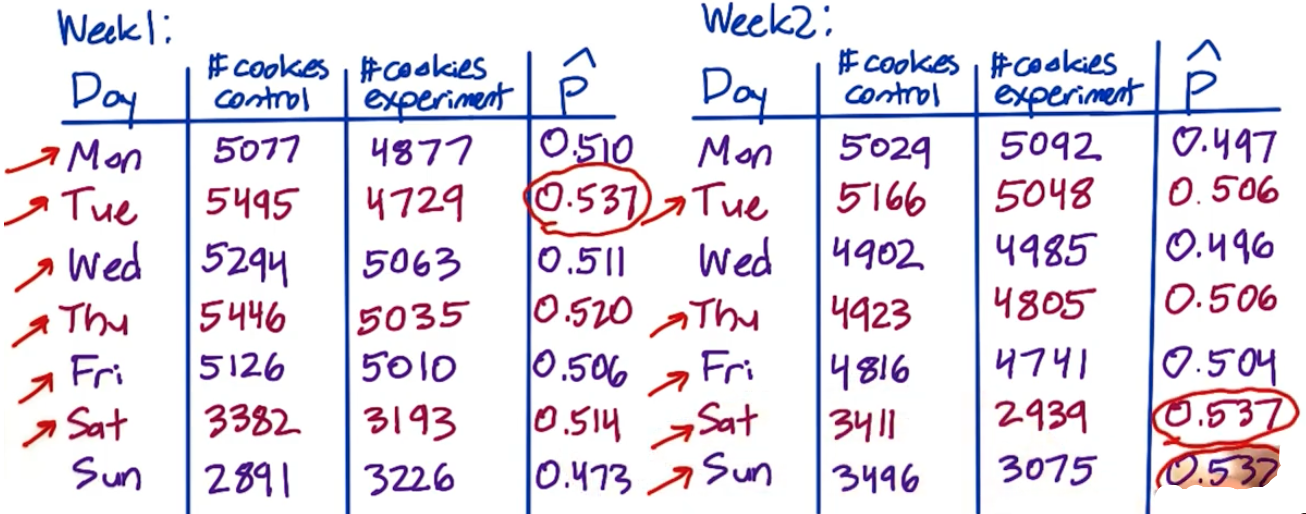 Week1:
Day #cookies control #cookies experiment p̂
Mon 5077 4877 0.510
Tue 5495 4729 0.537
Wed 5294 5063 0.511
Thu 5446 5035 0.520
Fri 5126 5010 0.506
Sat 3382 3193 0.514
Sun 2891 3226 0.473
Week2:
Day #cookies control #cookies experiment p̂
Mon 5029 5092 0.497
Tue 5166 5048 0.506
Wed 4902 4985 0.496
Thu 4923 4805 0.506
Fri 4816 4741 0.504
Sat 3411 2939 0.537
Sun 3496 3075 0.537